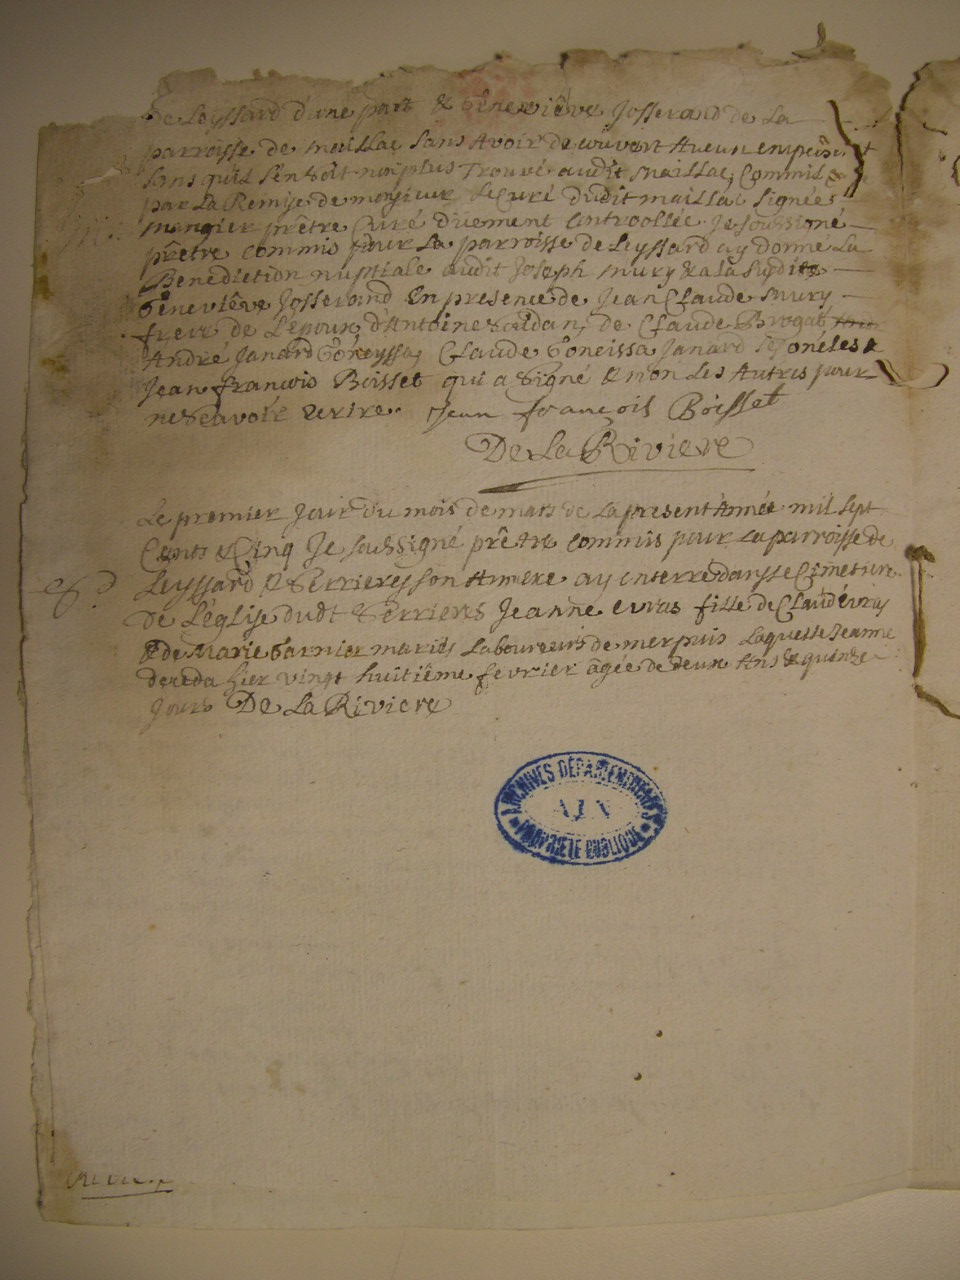 de Leyssard d'une part & Geneviêve Josserand de La
parroisse de maillac sans Avoir decouvert Aucun empêchemt
sans quil s'en soit non plus Trouvé audit maillac, Comm
par La Remise de monsieur Le Curé dudit maillac signée
mangier prêtre Curé Düement Controollée Je soussigné
prêtre commis pour La parroisse de Leyssard ay donné La
Benediction nuptiale audit Joseph mury & a la susdite
Geneviêve Josserand En presence de Jean Claude mury
frere de L'epoux, d'Antoine de Claude Brogat
André Janard Claude Goneissa Janard ses oncles &
Jean françois Boisset qui a signé & non Les Autres pour
ne sçavoir ecrire. Jean françois Boisset
De La Riviere
Le premier Jour du mois de mars de La present Année mil sept
Cents & Cinq Je soussigné prêtre commis pour La parroisse de
Leyssard & Serrieres son Annexe ay enterré dans Le Cimetiere
De L'église dudt Serrieres Jeanne evras fille de Claud evray
& de Marie Garnier mariés Laboureurs de merpuis Laquelle Jeanne
deceda hier vingt huitiême fevrier âgée de deux Ans & quinze
Jours De La Riviere
ARCHIVES DÉPARTEMENTALES
AIN
PROPRIÉTÉ PUBLIQUE